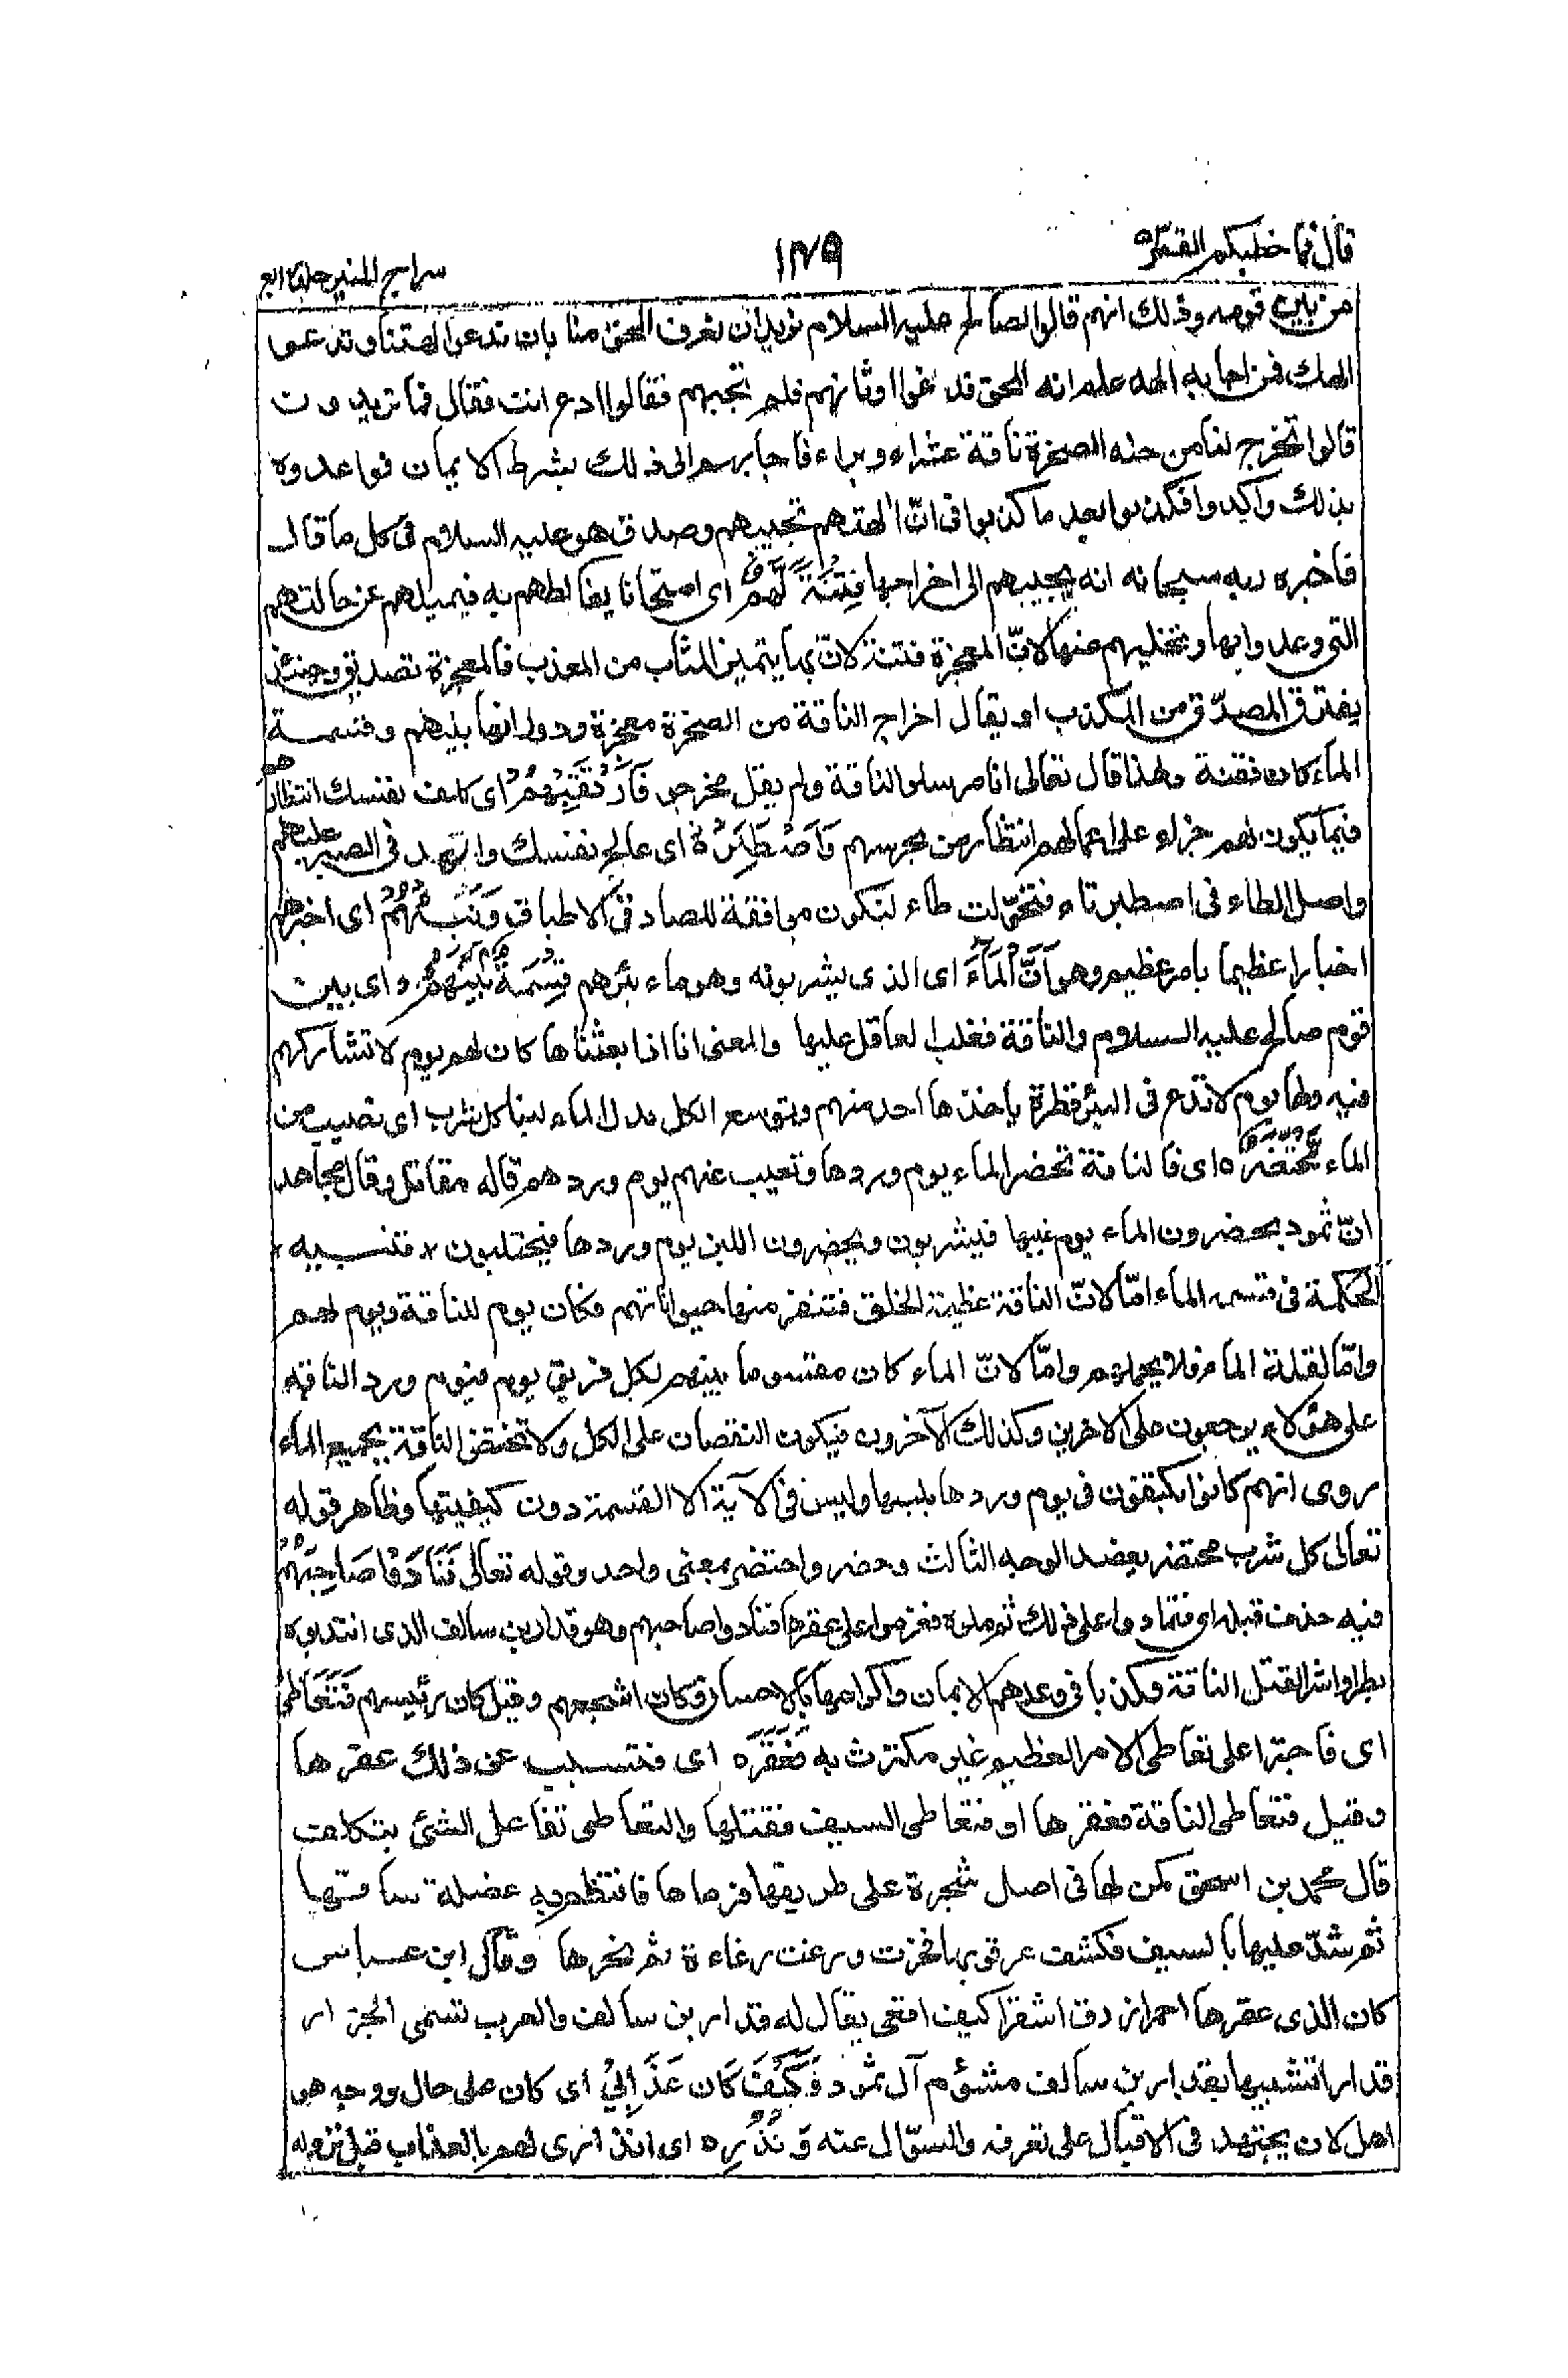 قال فما خطبكم القمر
١٣٧٩
سراج المنير جلد رابع
من بين قومه وذلك انهم قالوا لصالح عليه السلام نريد ان نعرف المحق منا بان ندعوا الهتنا وتدعوا
الهك فمن اجابه الهه علم انه المحق فدعوا اوثانهم فلم تجبهم فقالوا ادع انت فقال فما تريدون
قالوا تخرج لنا من هذه الصخرة ناقة عشراء وبراء فاجابهم الى ذلك بشرط الايمان فواعدوه
بذلك واكدوا فكذبوا بعد ما كذبوا فى انّ الهتهم تجيبهم وصدق هو عليه السلام فى كل ما قال
فاخبره ربه سبحانه انه يجيبهم الى اخراجها فِتْنَةً لَّهُمْ اى امتحانا يخالطهم به فيميلهم عن حالتهم
التى وعدوا بها ويخليهم عنها لانّ المعجزة فتنة لانّ بها يتميز المثاب من المعذب فالمعجزة تصديق وحينئذ
يفترق المصدّق من المكذب او يقال اخراج الناقة من الصخرة معجزة ودورانها بينهم وقسمة
الماء كان فتنة ولهذا قال تعالى انا مرسلو الناقة ولم يقل مخرجو فَارْتَقِبْهُمْ اى كلف نفسك انتظارهم
فيما يكون لهم جزاء على اعمالهم انتظار من يحرسهم وَاصْطَبِرْ ه اى عالج نفسك واجتهد فى الصبر عليهم
واصل الطاء فى اصطبر تاء فتحوّلت طاء لتكون موافقة للصاد فى الاطباق وَنَبِّئْهُمْ اى اخبرهم
اخبارا عظيما بامر عظيم وهو اَنَّ الْمَآءَ اى الذى يشربونه وهو ماء بئرهم قِسْمَةٌ بَيْنَهُمْ اى بين
قوم صالح عليه السلام والناقة فغلب العاقل عليها والمعنى انا اذا بعثناها كان لهم يوم لا تشاركهم
فيه ولها يوم لا تدع فى البئر قطرة ياخذها احد منهم وتوسع الكل بدل الماء لبنا كل شرب اى نصيب من
الماء مُّحْتَضَرٌ ه اى فالناقة تحضر الماء يوم وردها وتغيب عنهم يوم وردهم قاله مقاتل وقال مجاهد
انّ ثمود يحضرون الماء يوم غبها فيشربون ويحضرون اللبن يوم وردها فيحتلبون * تنبيه *
الحكمة فى قسم الماء امّا لانّ الناقة عظيمة الخلق فتنفر منها حيواناتهم فكان يوم للناقة ويوم لهم
وامّا لقلة الماء فلا يحملهم وامّا لانّ الماء كان مقسوما بينهم لكل فريق يوم فيوم ورد الناقة
على هؤلاء يرجعون على الاخرين وكذلك الآخرون فيكون النقصان على الكل ولا تختص الناقة بجميع الماء
روى انهم كانوا يكتفون فى يوم وردها بلبنها وليس فى الآية الا القسمة دون كيفيتها وظاهر قوله
تعالى كل شرب محتضر يعضد الوجه الثالث وحضر واحتضر بمعنى واحد وقوله تعالى فَنَادَوْا صَاحِبَهُمْ
فيه حذف قبله اى فتمادوا على ذلك ثم ملوه فعزموا على عقرها فنادوا صاحبهم وهو قدار بن سالف الذى انتدبوه
بطرا واشرا لقتل الناقة وكذبا فى وعدهم الايمان واكرامها بالاحسان وكان اشجعهم وقيل كان رئيسهم فَتَعَاطٰى
اى فاجترا على تعاطى الامر العظيم غير مكترث به فَعَقَرَ ه اى فتسبب عن ذلك عقرها
وقيل فتعاطى الناقة فعقرها او فتعاطى السيف فقتلها والتعاطى تفاعل الشئ بتكلف
قال محمد بن اسحق كمن لها فى اصل شجرة على طريقها فرماها فانتظم به عضلة ساقها
ثم شدّ عليها بالسيف فكشف عرقوبها فخرت ورغت رغاءة ثم نحرها وقال ابن عباس
كان الذى عقرها احمر ازرق اشقر اكشف اقعى يقال له قدار بن سالف والعرب تسمى الجزار
قدارا تشبيها بقدار بن سالف مشؤم آل ثمود فَكَيْفَ كَانَ عَذَابِىْ اى كان على حال ووجه هو
اهل لان يجتهد فى الاقبال على تعرفه والسؤال عنه وَنُذُرِ ه اى انذارى لهم بالعذاب قبل نزوله